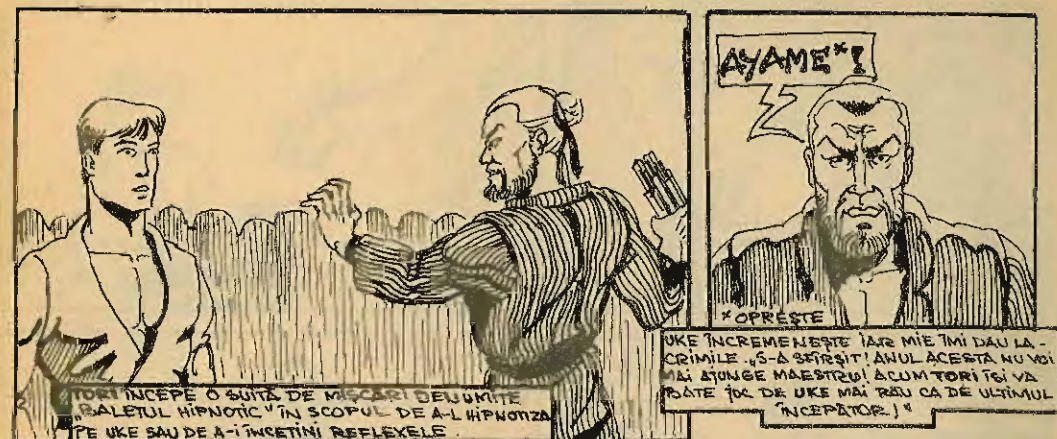 TORI ÎNCEPE O SUITĂ DE MIȘCĂRI DENUMITE
„BALETUL HIPNOTIC" ÎN SCOPUL DE A-L HIPNOTIZA
PE UKE SAU DE A-I ÎNCETINI REFLEXELE
AYAME*!
*OPREȘTE
UKE ÎNCREMENEȘTE IAR MIE ÎMI DAU LA-
CRIMILE. „S-A SFÎRȘIT! ANUL ACESTA NU VOI
MAI AJUNGE MAESTRU! ACUM TORI ÎȘI VA
BATE JOC DE UKE MAI RĂU CA DE ULTIMUL
ÎNCEPĂTOR!"